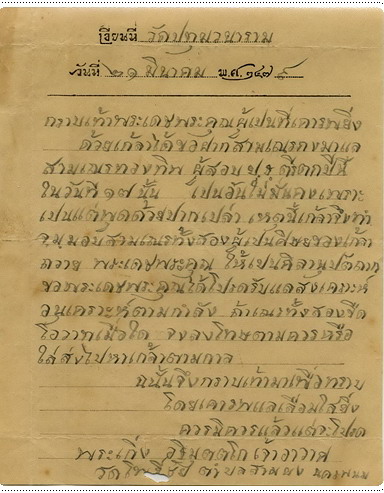 เขียนที่ วัดปทุมวนาราม
วันที่ ๒๑ มีนาคม พ.ศ. ๒๔๗๕
กราบเท้าพระเดชพระคุณผู้เป็นที่เคารพยิ่ง
ด้วยเกล้าได้ขอฝากสามเณรคงมาแล
สามเณรทองทิพ ผู้สอบ
ในวันที่ ๑๗ นั้น เป็นอันไม่มั่นคงเพราะ
เป็นแต่พูดด้วยปากเปล่า เหตุนี้เกล้าจึงทำ
มอบสามเณรทั้งสองผู้เป็นศิษย์ของเกล้า
ถวาย พระเดชพระคุณ ให้เป็น
ขอพระเดชพระคุณได้โปรดรับแลสงเคราะห์
อนุเคราะห์ตามกำลัง ถ้าเณรทั้งสองขืด
โอวาทเมื่อใด จงลงโทษตามควรหรือ
ใส่ส่งไปหาเกล้าตามกาล
ฉนั้นจึงกราบเท้ามาเพื่อทราบ
โดยเคารพแลเลื่อมใสยิ่ง
ควรมิควรแล้วแต่จะโปรด
พระเกิ่ง อธิมุตตโก เจ้าอาวาศ
วัดโพธิ์ชัย ตำบลสามผง นครพนม